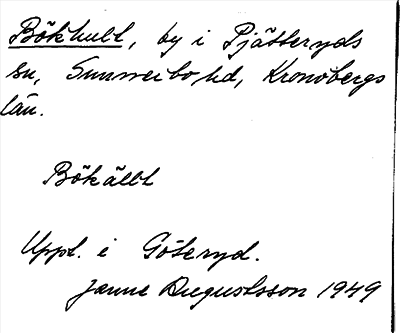 Bökhult, by i Pjätteryds
sn, Sunnerbo hd, Kronobergs
län.
Bökällt
Uppt. i Göteryd.
Janne Augustsson 1949